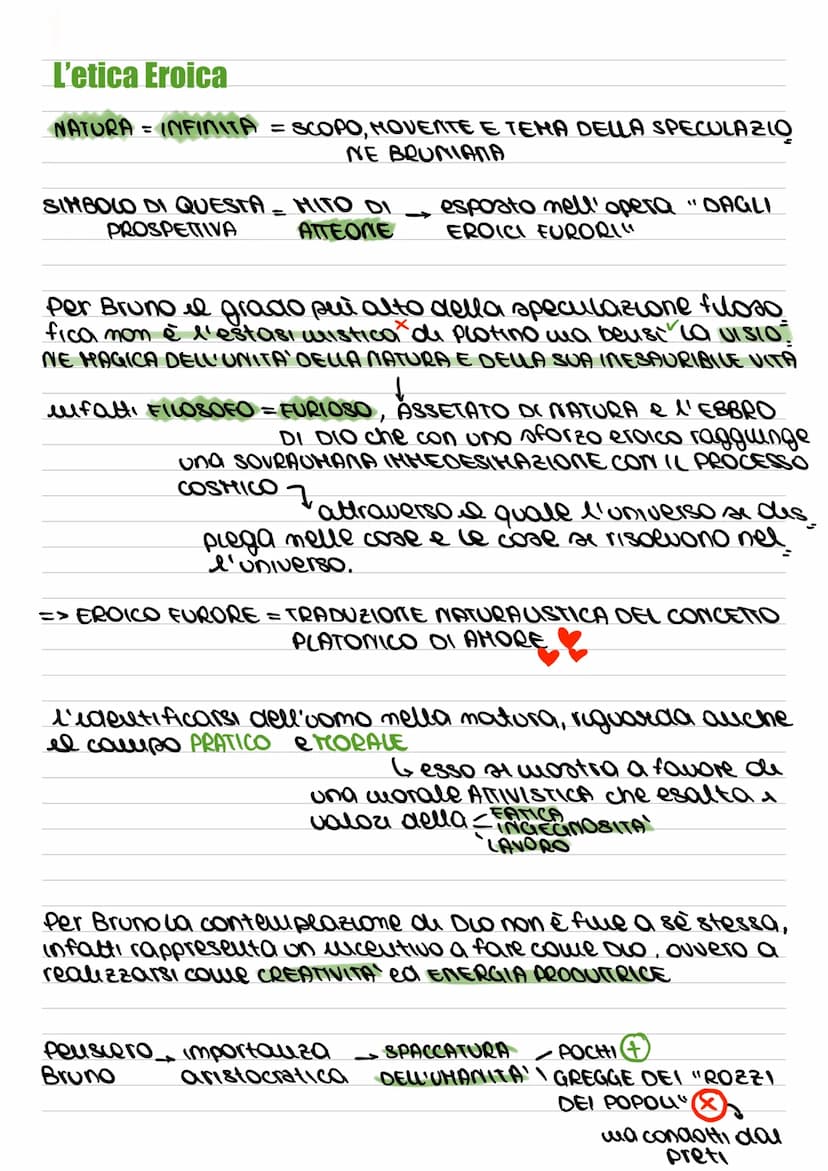 L'etica Eroica
NATURA = INFINITÀ = SCOPO, MOVENTE E TEMA DELLA SPECULAZIO
NE BRUNIANA
SIMBOLO DI QUESTA = MITO DI → esposto nell'opera "DAGLI
PROSPETTIVA ATTEONE EROICI FURORI"
Per Bruno il grado più alto della speculazione filoso-
fica non è l'estasi mistica × di Plotino ma bensì ✓ LA VISIO-
NE MAGICA DELL'UNITA' DELLA NATURA E DELLA SUA INESAURIBILE VITA
↓
infatti FILOSOFO = FURIOSO, ASSETATO DI NATURA e l'EBBRO
DI DIO che con uno sforzo eroico raggiunge
una SOVRAUMANA IMMEDESIMAZIONE CON IL PROCESSO
COSMICO
↳ attraverso il quale l'universo si dis-
piega nelle cose e le cose si risolvono nel-
l'universo.
=> EROICO FURORE = TRADUZIONE NATURALISTICA DEL CONCETTO
PLATONICO DI AMORE
l'identificarsi dell'uomo nella natura, riguarda anche
il campo PRATICO e MORALE
↳ esso si mostra a favore di
una morale ATTIVISTICA che esalta i
valori della FATICA
INGEGNOSITA'
LAVORO
Per Bruno la contemplazione di Dio non è fine a sè stessa,
infatti rappresenta un incentivo a fare come Dio, ovvero a
realizzarsi come CREATIVITA' ed ENERGIA PRODUTTRICE
Pensiero → importanza → SPACCATURA – POCHI +
Bruno aristocratica DELL'UMANITA' \ GREGGE DEI "ROZZI
DEI POPOLI" ×
ma condotti dai
preti